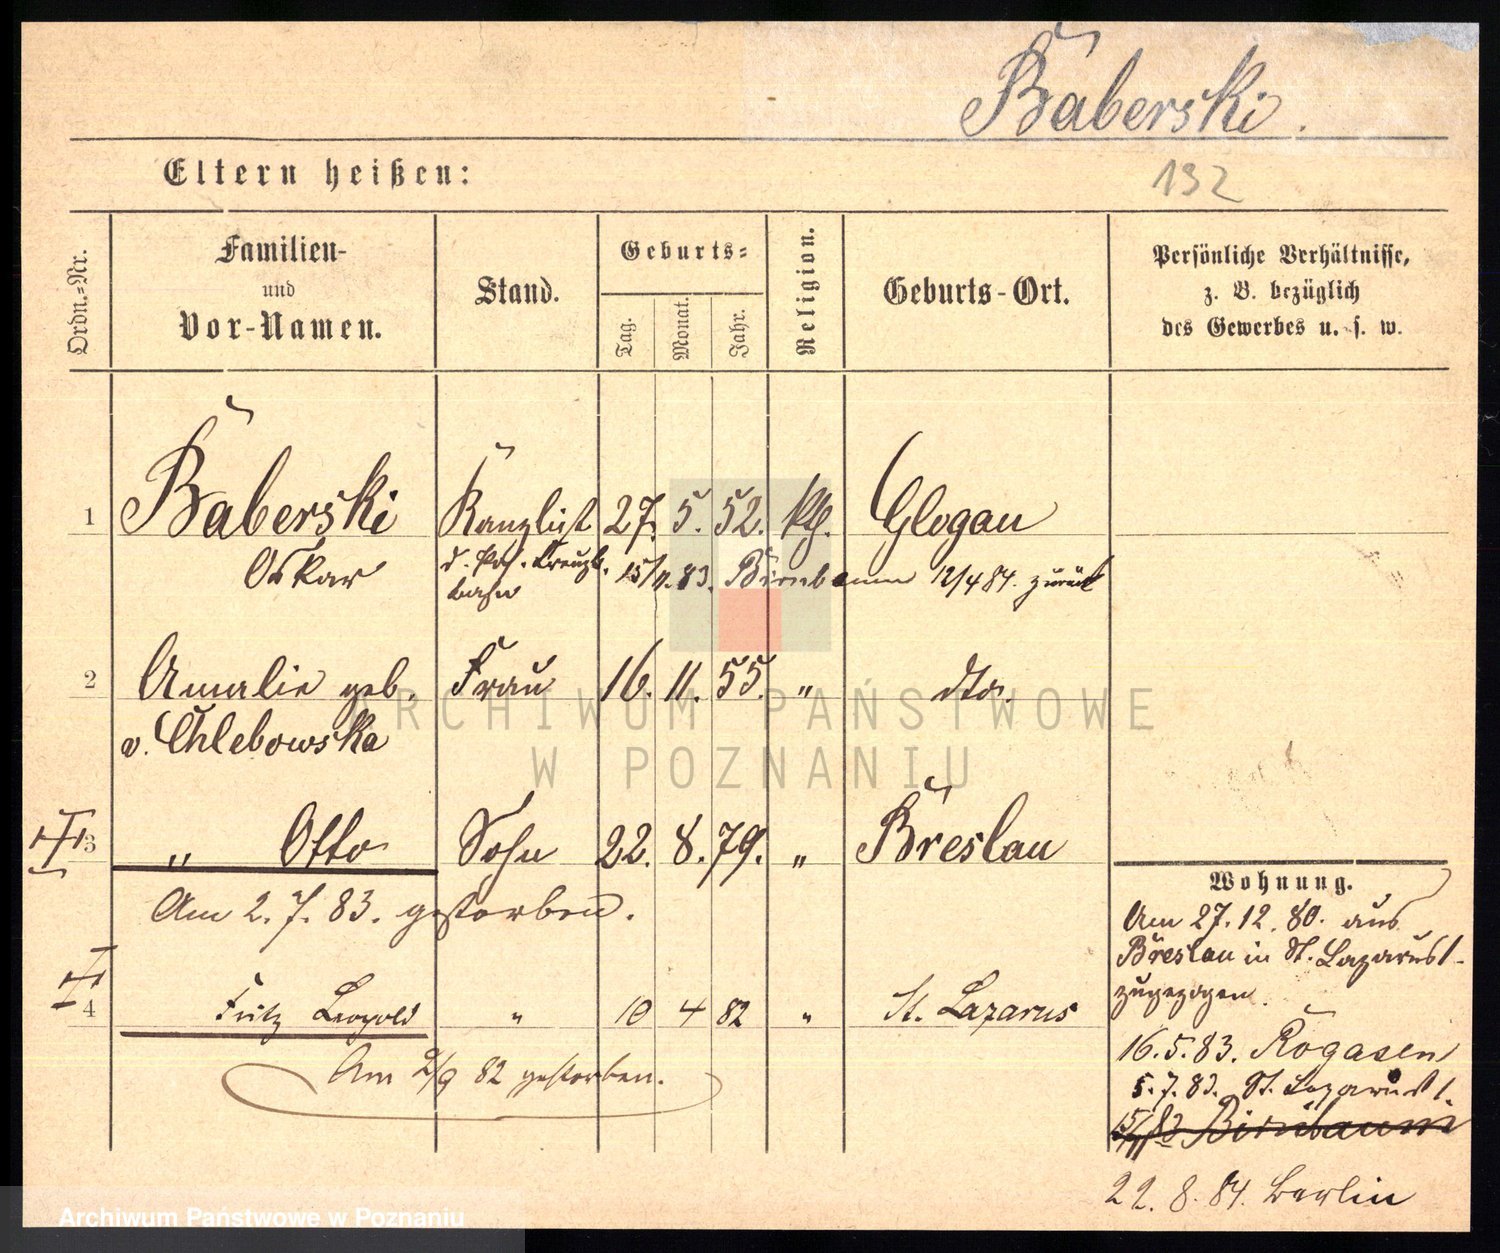 Baberski.
132
Eltern heißen:
Ordn.=Nr.
Familien-
und
Vor-Namen.
Stand.
Geburts=
Tag.
Monat.
Jahr.
Religion.
Geburts-Ort.
Persönliche Verhältnisse,
z. B. bezüglich
des Gewerbes u. s. w.
1 Baberski Kanzlist 27. 5. 52. kth. Glogau
Oskar d. Pos. Kreuzb. 15/11. 83. Birnbaum 12/4 84. zurück
bahn
2 Amalie geb. Frau 16. 11. 55. " dto.
v. Chlebowska
3 " Otto Sohn 22. 8. 79. " Breslau
Am 2. 7. 83. gestorben.
4 Fritz Leopold " 10 4 82 " St. Lazarus
Am 2/9 82 gestorben.
Wohnung.
Am 27. 12. 80. aus
Breslau in St. Lazarus 1.
zugezogen.
16. 5. 83. Rogasen
5. 7. 83. St. Lazarus 1.
15/11 83 Birnbaum
22. 8. 84. Berlin
ARCHIWUM PAŃSTWOWE
W POZNANIU
Archiwum Państwowe w Poznaniu